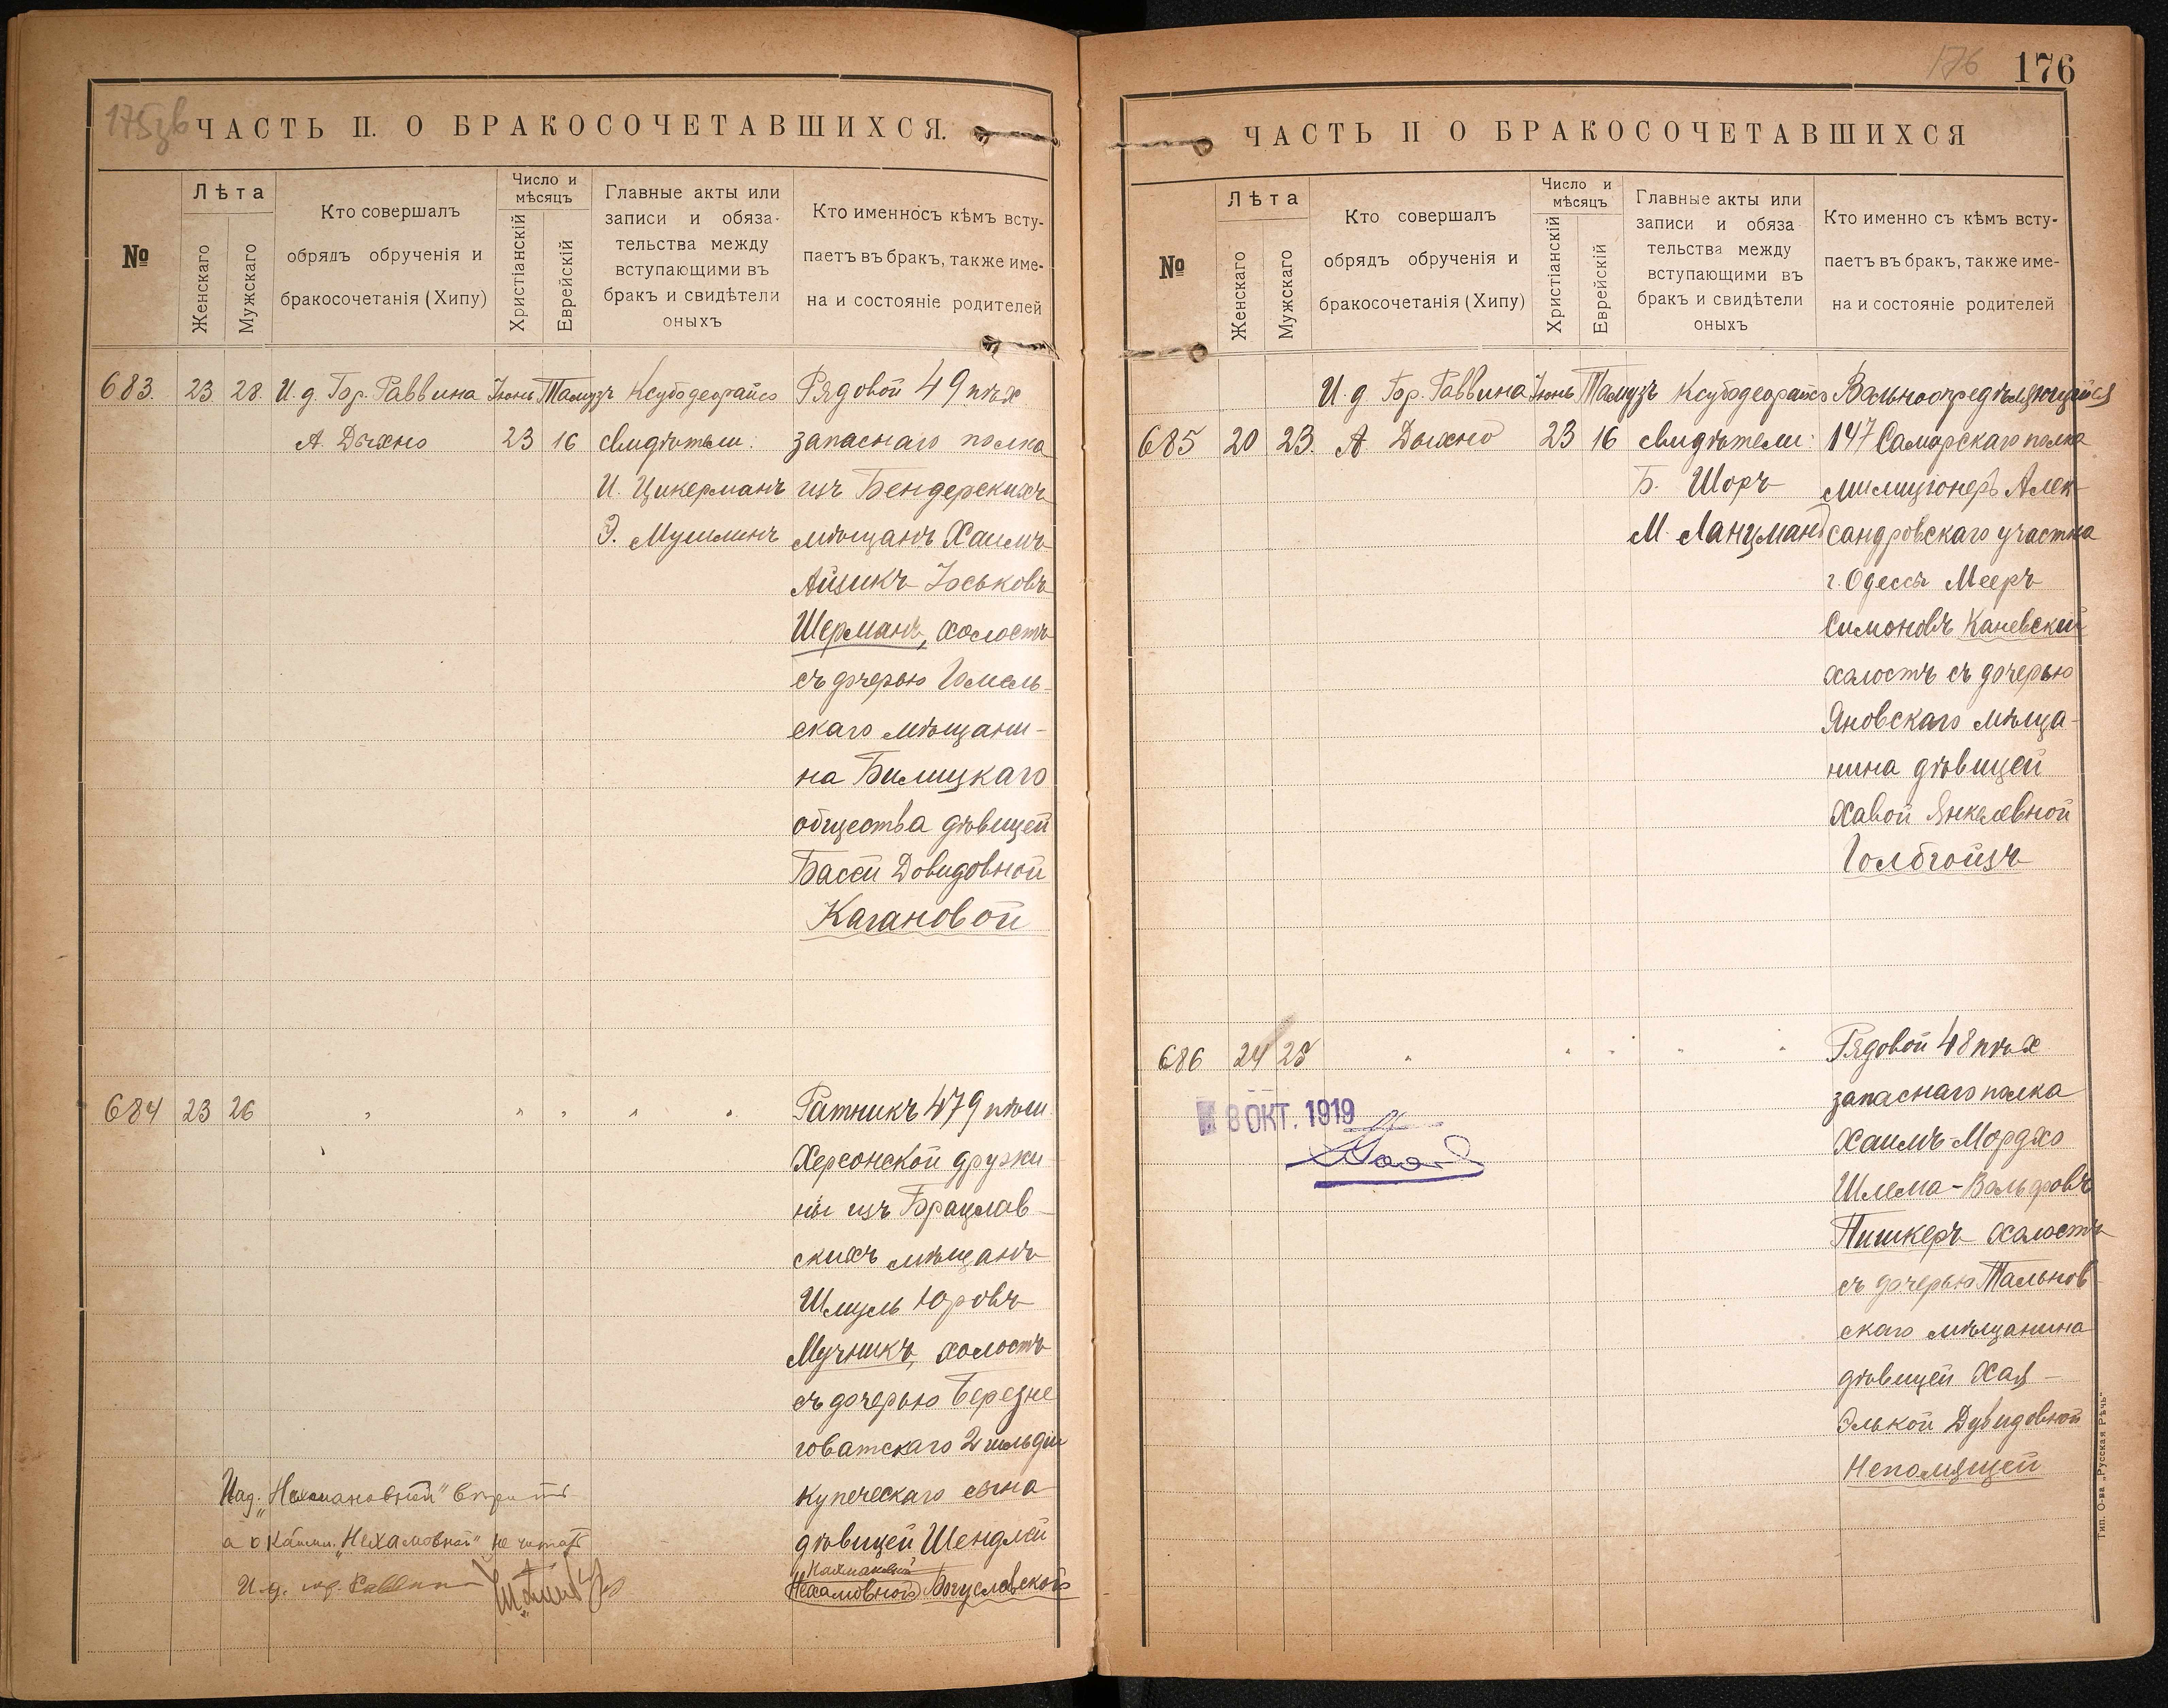 175 зв
ЧАСТЬ II. О БРАКОСОЧЕТАВШИХСЯ.
№
Лѣта
Женскаго
Мужскаго
Кто совершалъ
обрядъ обрученія и
бракосочетанія (Хипу)
Число и
мѣсяцъ
Христіанскій
Еврейскій
Главные акты или
записи и обяза-
тельства между
вступающими въ
бракъ и свидѣтели
оныхъ
Кто именносъ кѣмъ всту-
паетъ въ бракъ, также име-
на и состояніе родителей
683. 23 28. И. д. Гор. Раввина Іюнь Тамузъ Ксубодеорайсо Рядовой 49 пѣх
А. Дыхно 23 16 свидѣтели: запаснаго полка
И. Цикерманъ изъ Бендерскихъ
Э. Мушлинъ мѣщанъ Хаимъ
Айзикъ Іоськовъ
Шерманъ, холостъ
съ дочерью Гомель-
скаго мѣщани-
на Билицкаго
общества дѣвицей
Басси Довидовной
Кагановой
684 23 26 " " " " " Ратникъ 479 пѣш.
Херсонской дружи-
ны изъ Брацлав-
скихъ мѣщанъ
Шмуль Юровъ
Мучникъ, холостъ
съ дочерью Березне
говатскаго 2 гильдіи
купеческаго сына
дѣвицей Шендлей
Нахмановной
Нехамовной Богуславской
Над. "Нахмановной"
а "Нехамовной" не читать
И. д. гор. Раввина
176
176
ЧАСТЬ II О БРАКОСОЧЕТАВШИХСЯ
№
Лѣта
Женскаго
Мужскаго
Кто совершалъ
обрядъ обрученія и
бракосочетанія (Хипу)
Число и
мѣсяцъ
Христіанскій
Еврейскій
Главные акты или
записи и обяза
тельства между
вступающими въ
бракъ и свидѣтели
оныхъ
Кто именно съ кѣмъ всту-
паетъ въ бракъ, также име-
на и состояніе родителей
И. д Гор. Раввина Іюнь Тамузъ Ксубодеорайсо Вольноопредѣляющійся
685 20 23. А Дыхно 23 16 свидѣтели: 147 Самарскаго полка
Б. Шоръ милиціонеръ Алек-
М. Ланцманъ сандровскаго участка
г. Одессы Мееръ
Симоновъ Каневскій
холостъ съ дочерью
Яновскаго мѣща-
нина дѣвицей
Хавой Янкелевной
Голбгойзъ
686 24 25 " " " " " Рядовой 48 пѣх
запаснаго полка
Хаимъ-Мордхо
Шлема-Вольфовъ
Пишкеръ холостъ
съ дочерью Тальнов-
скаго мѣщанина
дѣвицей Хая-
Элькой Дувидовной
Непомящей
8 ОКТ. 1919
Тип. О-ва „Русская Рѣчь"